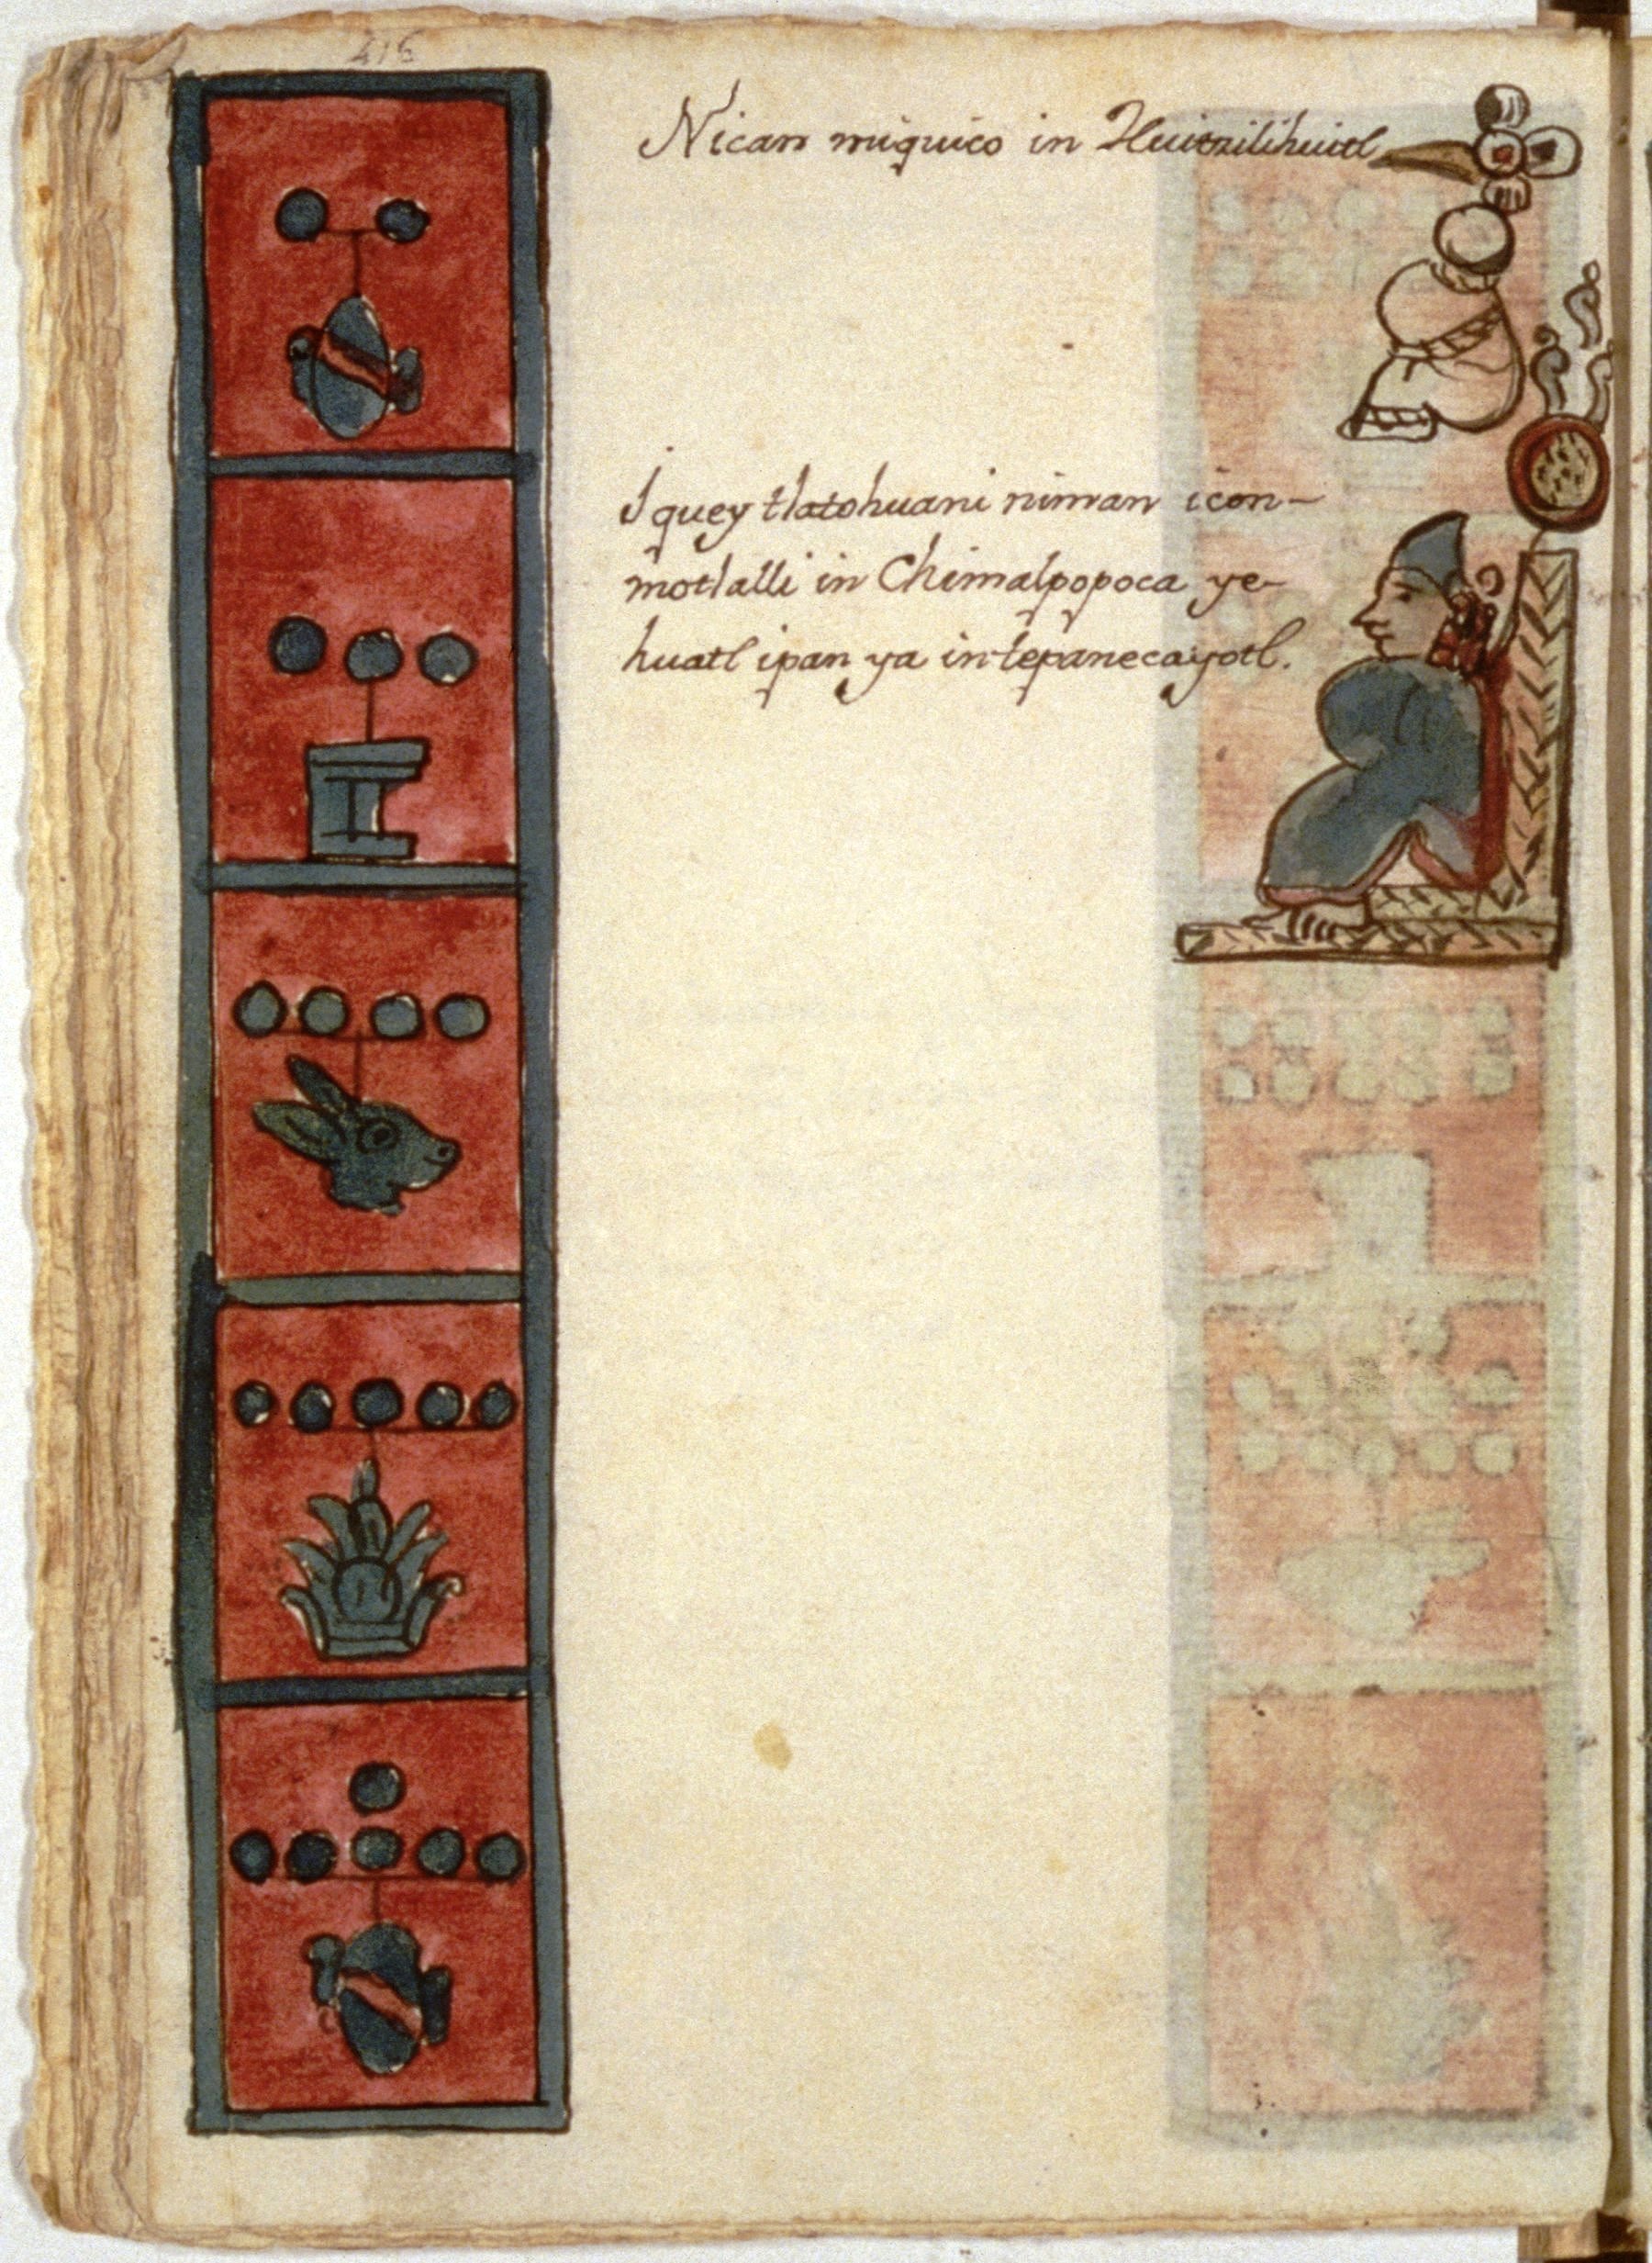 416
Nican miquico in Huitzilihuitl
Iquey tlatohuani niman icon-
motlalli in Chimalpopoca ye-
huatl ipan ya in tepanecayotl.